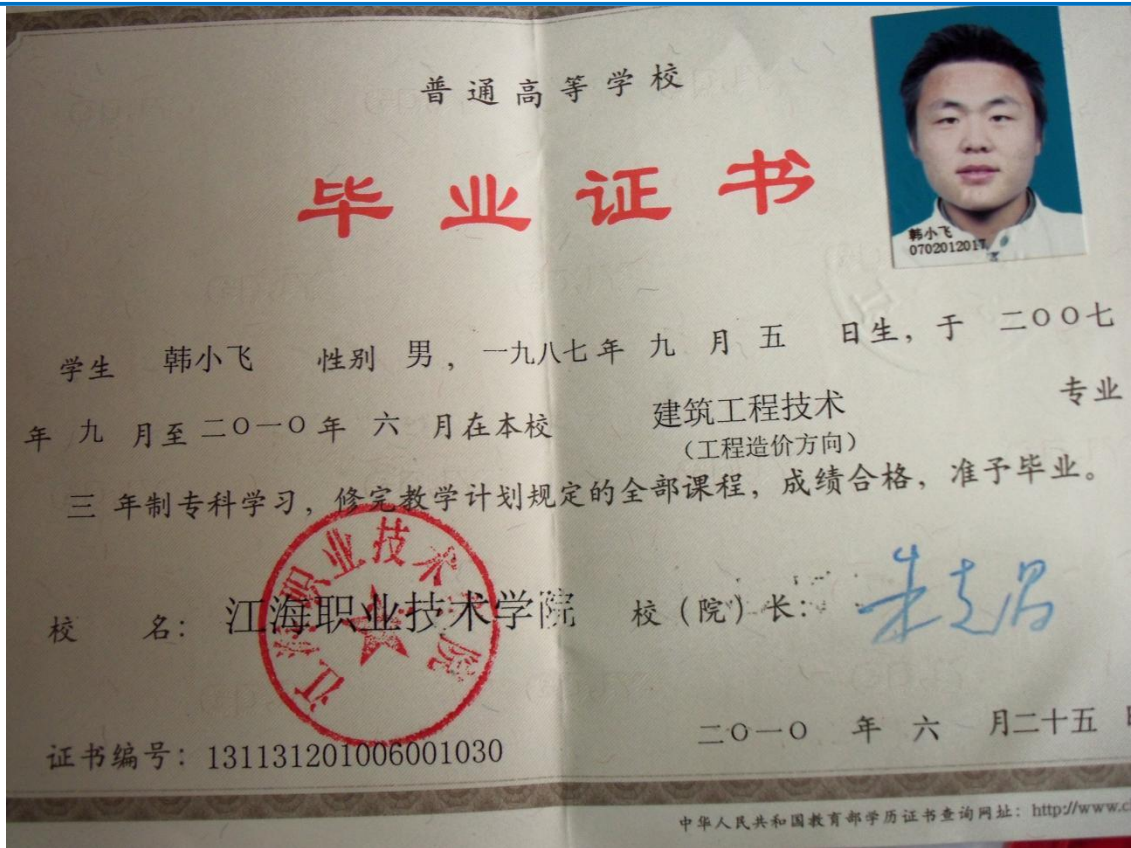 普通高等学校
毕业证书
韩小飞
0702012017
学生 韩小飞 性别 男，一九八七年 九 月 五 日生，于 二〇〇七
年 九 月至二〇一〇年 六 月在本校 建筑工程技术 专业
（工程造价方向）
三 年制专科学习，修完教学计划规定的全部课程，成绩合格，准予毕业。
江海职业技术学院
校 名：江海职业技术学院 校（院）长：
证书编号：131131201006001030 二〇一〇 年 六 月二十五
中华人民共和国教育部学历证书查询网址：http://www.c